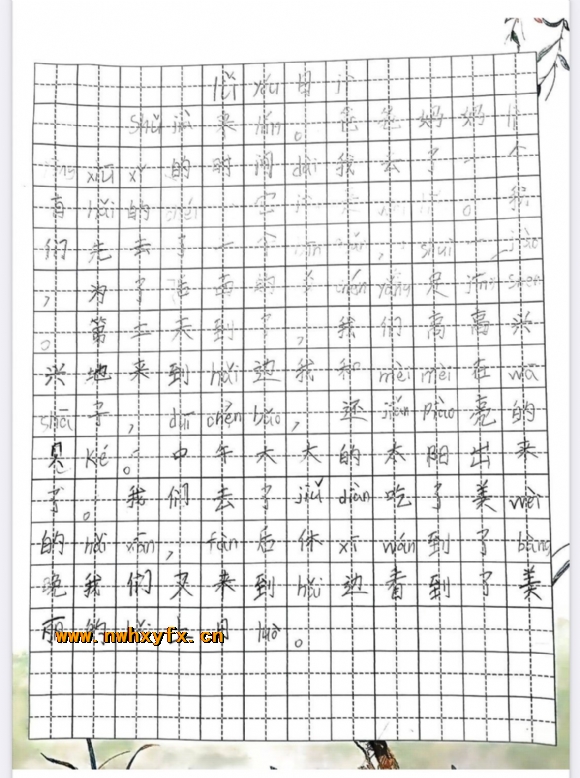 lǚ yóu 日 jì
shǔ jià 来 lín。爸爸妈妈
xiū xi 的时间 dài 我去了一个
有 hǎi 的
们先去了一个
，为了后面的 yǎng 足 jīng shén
。第二天到了，我们高高兴
兴地来到 hǎi 边我和 mèi mei 在 wā
shā 子，duī chéng bǎo，还 jiǎn piào 亮的
贝 ké。中午大大的太阳出来
了。我们去了 jiǔ diàn 吃了美 wèi
的 hǎi xiān，fàn 后休 xī wán 到了 bàng
晚我们又来到 hǎi 边看到了美
丽的日 luò。
www.nwhxyfx.cn